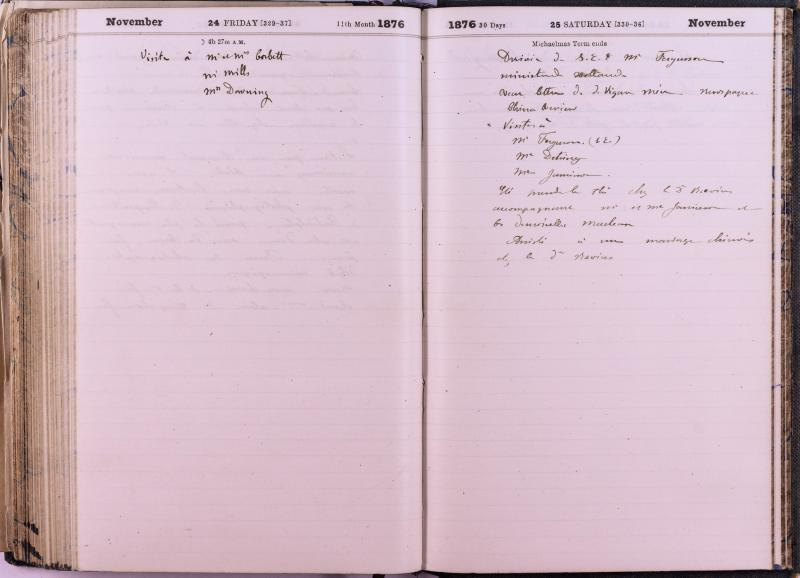 November 24 FRIDAY [329-37] 11th Month 1876
☽ 4h 27m A.M.
Visite à Mr et Mrs Corbett
Mr Mills
Mrs Downing
1876 30 Days 25 SATURDAY [330-36] November
Michaelmas Term ends
de S.E. Mr Ferguson
ministre de
lettre de newspaper
China Review
Visites à
Mr Ferguson. (S.E.)
Mr
Mr Jamieson.
Été prendre le thé chez le Dr Nevius
accompagnant Mr et Mme Jamieson et
la demoiselle
Assisté à un mariage chinois
chez le Dr Nevius